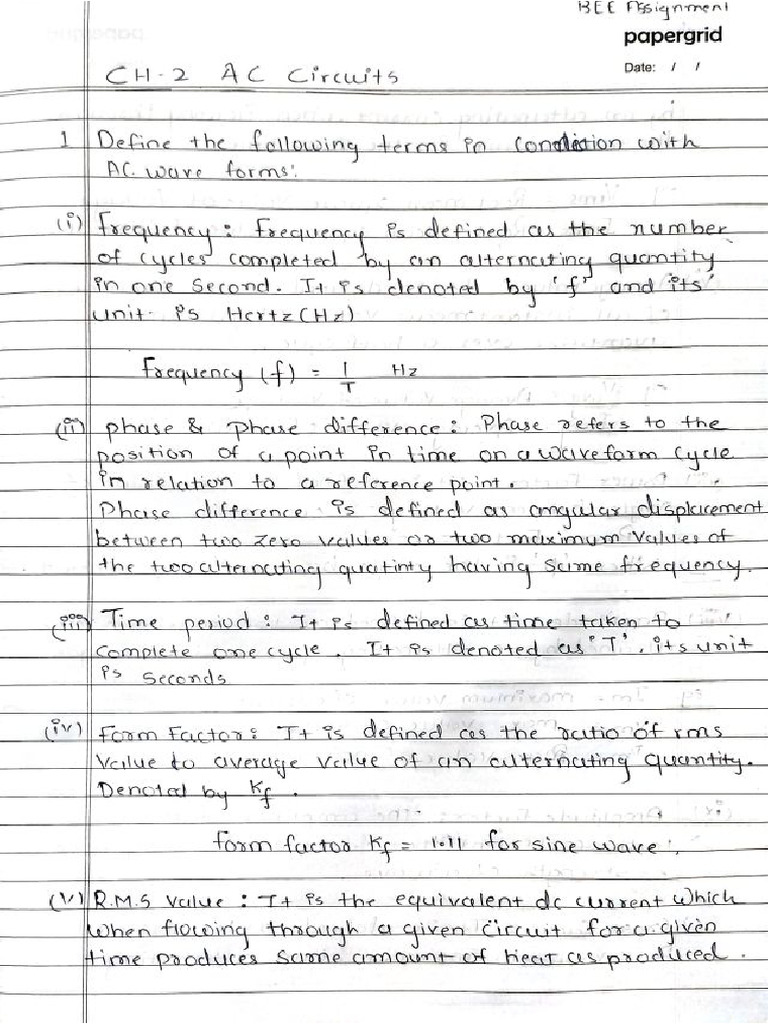 BEE Assignment
papergrid
Date: / /
CH-2 AC Circuits
1 Define the following terms in condition with
AC wave forms:
(i) Frequency: Frequency is defined as the number
of cycles completed by an alternating quantity
in one second. It is denoted by 'f' and its
unit is Hertz(Hz)
Frequency (f) = 1/T Hz
(ii) phase & Phase difference: Phase refers to the
position of a point in time on a waveform cycle
in relation to a reference point.
Phase difference is defined as angular displacement
between two zero values or two maximum values of
the two alternating quatinty having same frequency.
(iii) Time period: It is defined as time taken to
complete one cycle. It is denoted as 'T', its unit
is seconds
(iv) Form Factor: It is defined as the ratio of rms
value to average value of an alternating quantity.
Denoted by Kf.
form factor Kf = 1.11 for sine wave.
(v) R.M.S value: It is the equivalent dc current which
when flowing through a given circuit for a given
time produces same amount of heat as produced.